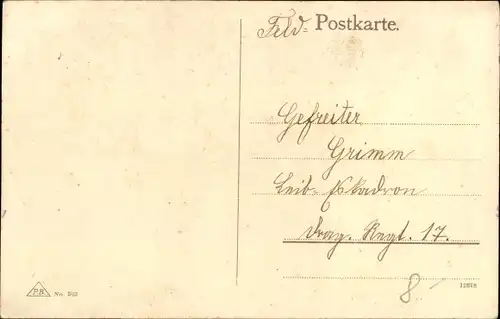 Feld= Postkarte.
Gefreiter
Grimm
Leib-Eskadron
Drag. Regt. 17.
8.-
PR No. 592 12818